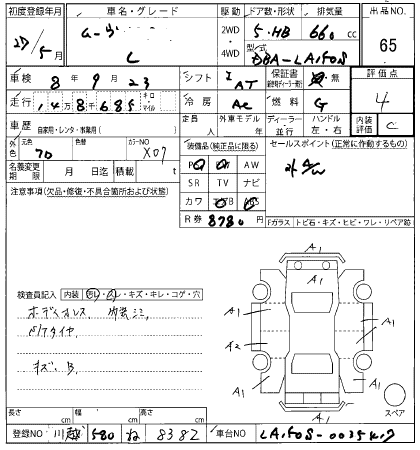 初度登録年月 車名・グレード 駆動 ドア数・形状 排気量 出品NO
27/5月 2WD 5・HB 660 cc 65
4WD 型式 DBA-LA150S
L
車検 8年9月23 シフト AT 保証書 無 評価点
走行 14万8千685 キロ・マイル 冷房 AC 燃料 G 4
定員 人 外車モデル 年 ディーラー・並行 ハンドル 左・右 内装評価 C
車歴 自家用・レンタ・事業用( )
外色 元色 色替 カラーNO X07
装備品(純正品に限る) セールスポイント(正常に作動するもの)
名義変更期限 月 日迄 積載 t
PS PW AW
SR TV ナビ
カワ エアB ABS
R券 8780円
注意事項(欠品・修復・不具合箇所および状態)
Fガラス トビ石・キズ・ヒビ・ワレ・リペア跡
A1
A1
A1 A1
A2 A1
A1 A1
A1
検査員記入 内装 ヨゴレ・スレ・キズ・キレ・コゲ・穴
キズ、B
スペア
長さ cm 幅 cm 高さ cm
登録NO 川越 580 ね 8382 車台NO LA150S-0035417